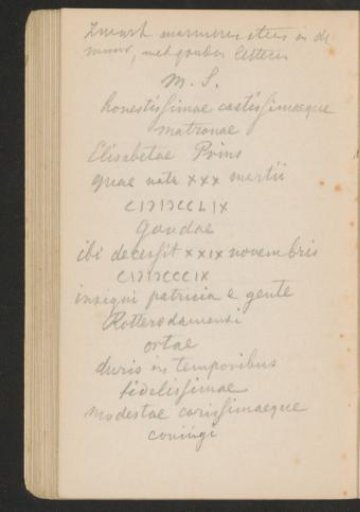 Zwart marmeren steen in de
muur, met gouden letters
M. S.
honestissimae castissimaeque
matronae
Elisabetae Prins
quae nata XXX martii
CIƆIƆCCLIX
Goudae
ibi decessit XXIX novembris
CIƆIƆCCCIX
insigni patricia e gente
Rotterodamensi
ortae
duris in temporibus
fidelissimae
modestae carissimaeque
coniugi